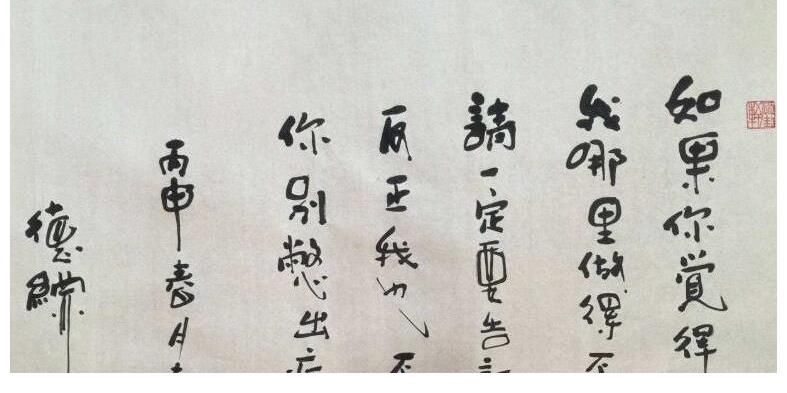 如果你覺得
我哪里做得不
請一定要告
反正我也不
你别憋出
丙申春月
德綱